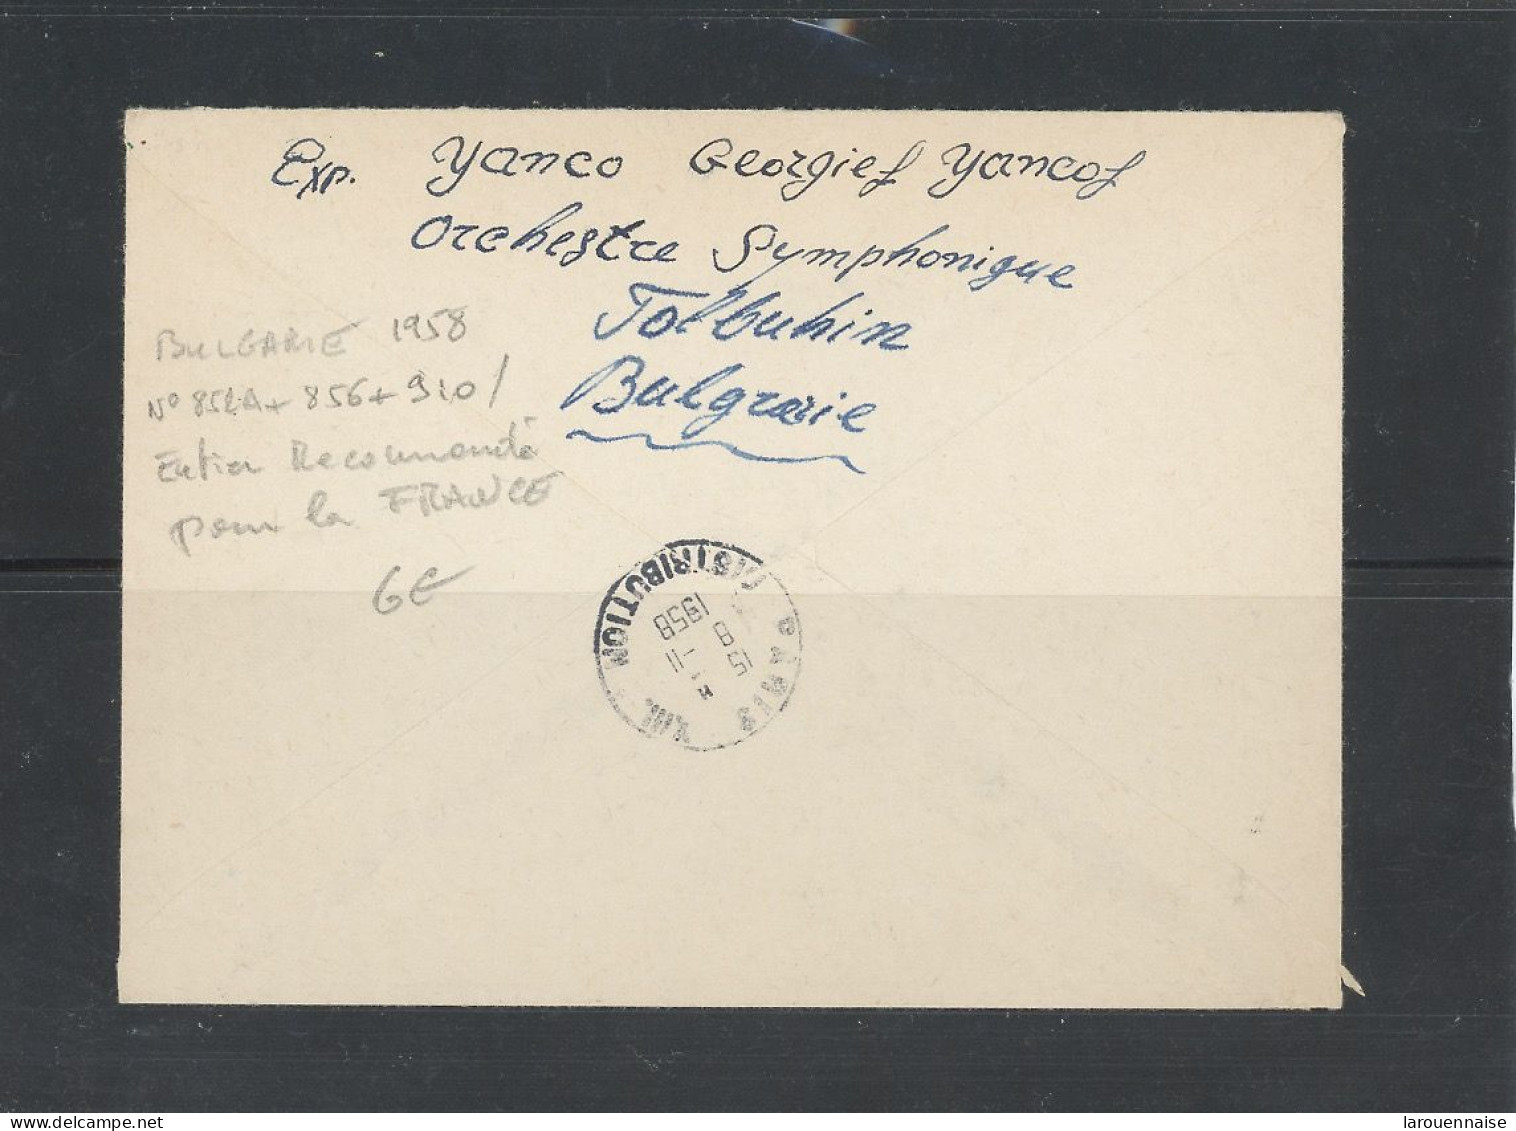 Exp. Yanco Georgief Yancof
Orchestre Symphonique
Tolbuhin
Bulgarie
BULGARIE 1958
N° 852A + 856 + 910 /
Entier Recommandé
pour la FRANCE
6€
PARIS XIII DISTRIBUTION
15 -11
8
1958
larouennaise